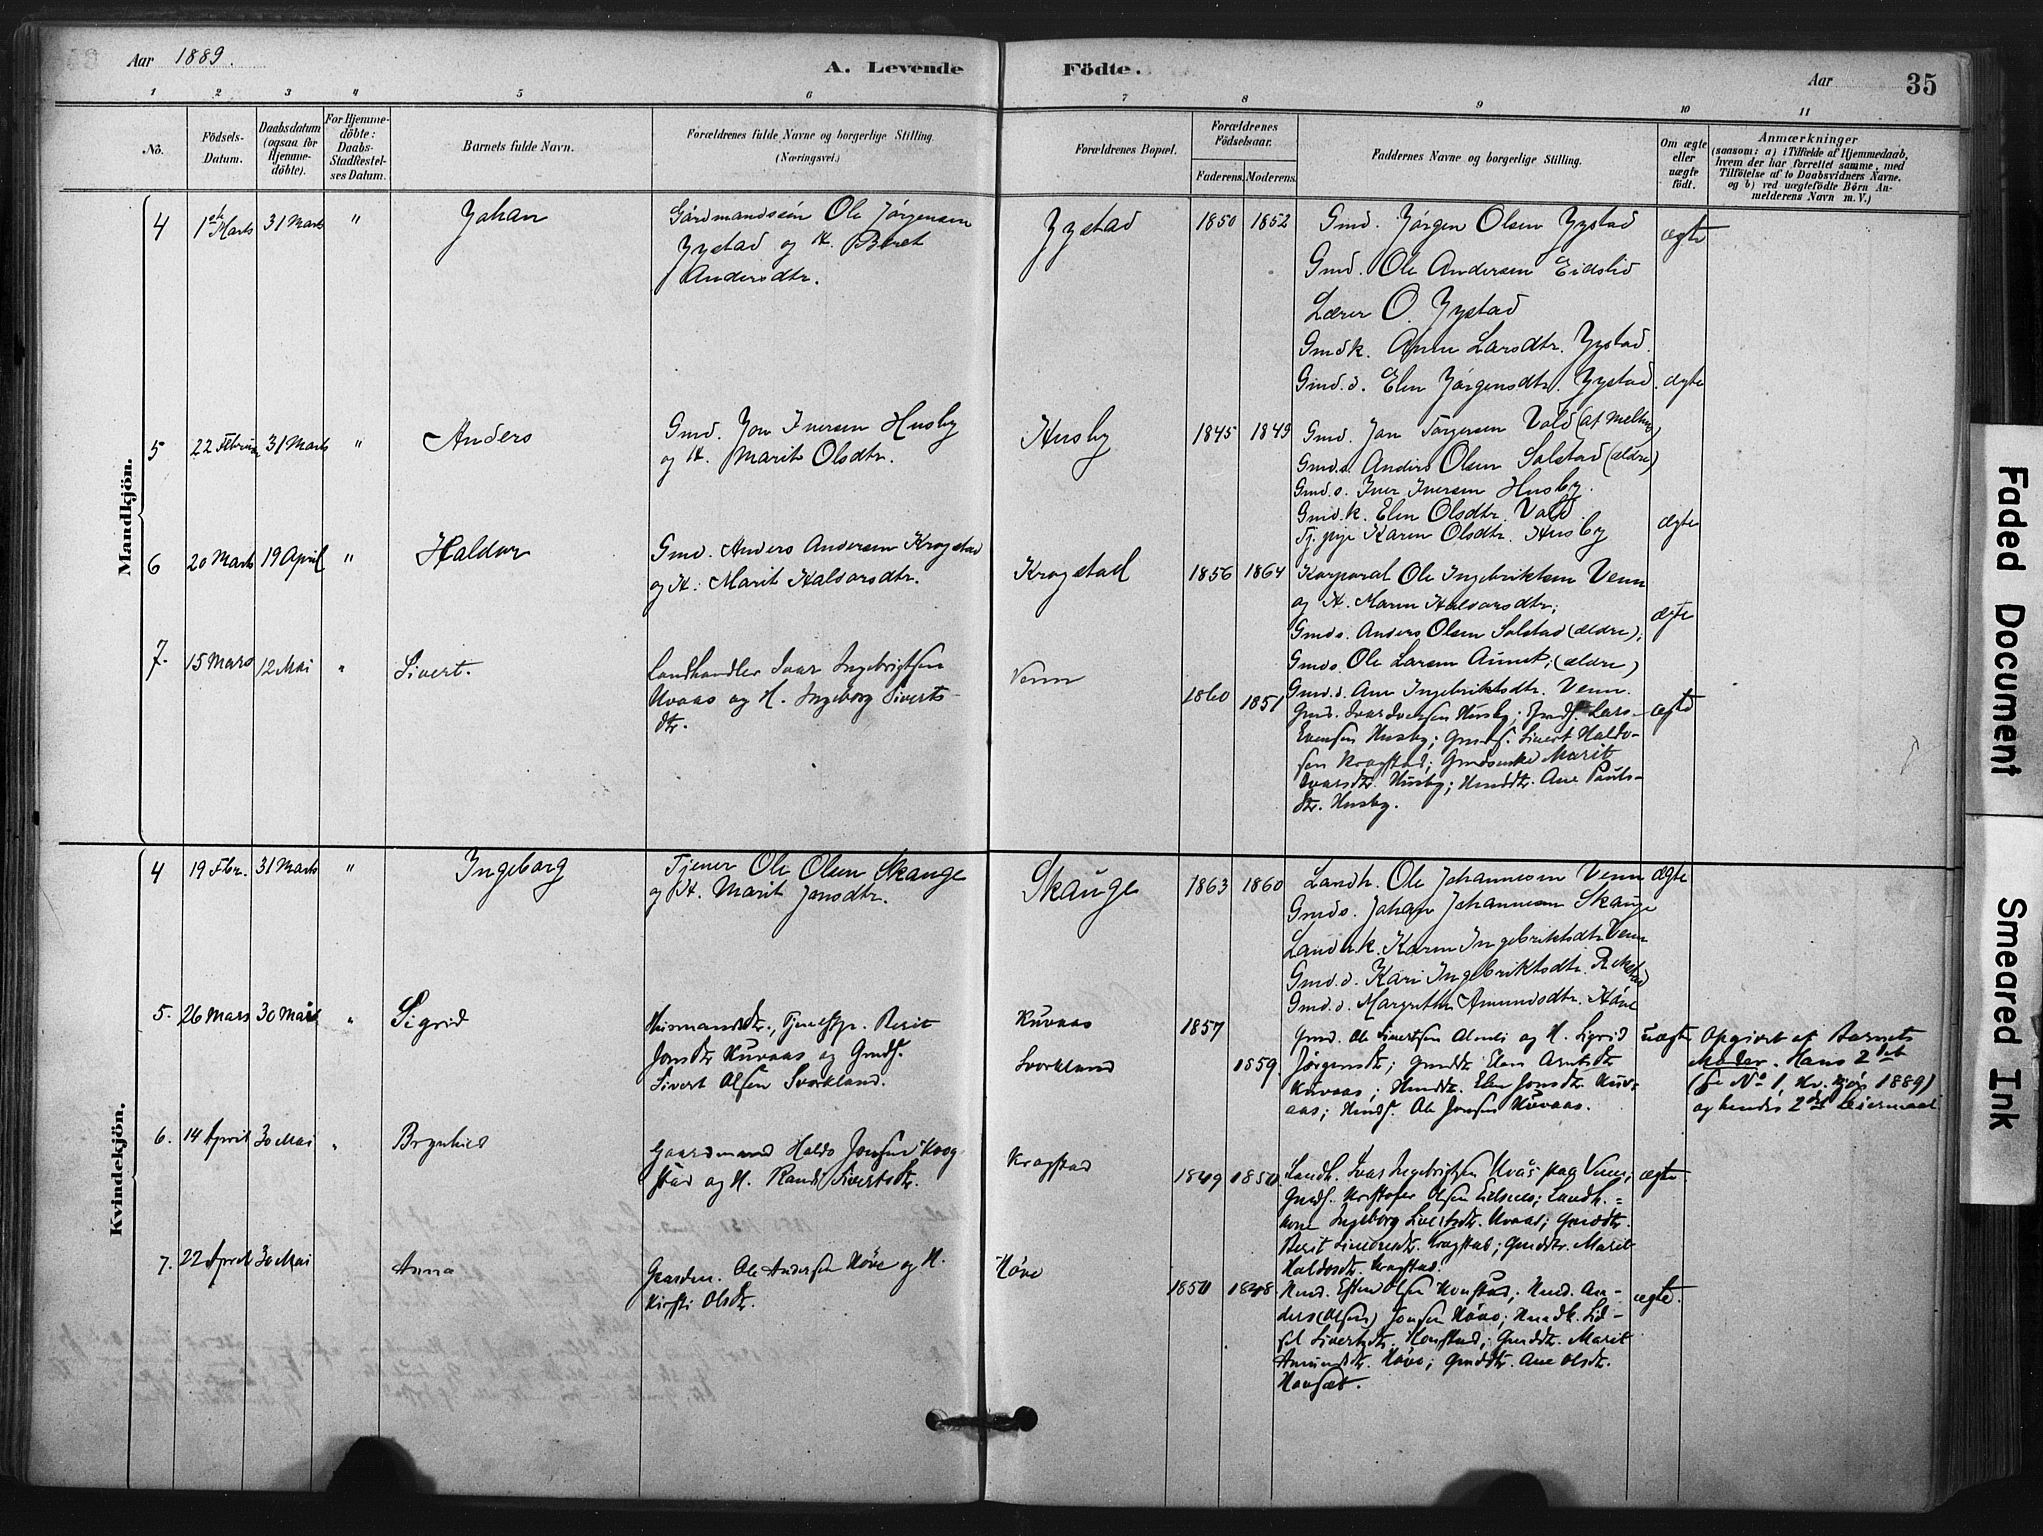 Aar 1889.
A. Levende Födte.
Aar
35
1 2 3 4 5 6 7 8 9 10 11
No.
Födsels-
Datum.
Daabsdatum
(ogsaa for
Hjemme-
döbte).
For Hjemme-
döbte:
Daabs-
Stadfæstel-
ses Datum.
Barnets fulde Navn.
Forældrenes fulde Navne og borgerlige Stilling.
(Næringsvei.)
Forældrenes Bopæl.
Forældrenes
Födselsaar.
Faderens. Moderens.
Faddernes Navne og borgerlige Stilling.
Om ægte
eller
uægte
födt.
Anmærkninger
(saasom: a) i Tilfælde af Hjemmedaab,
hvem der har forrettet samme, med
Tilföielse af to Daabsvidners Navne,
og b) ved uægtefödte Börn An-
melderens Navn m.V.)
Mandkjön.
4 1ste Marts 31 Marts " Johan
Gårdmandssön Ole Jörgensen
Yystad og H. Beret
Andersdtr.
Yystad 1850 1852
Gmd. Jörgen Olsen Yystad
Gmd. Ole Andersen Eidslid
Lærer O. Yystad
Gmdk. Anne Larsdtr. Yystad.
Gmd.d. Elen Jörgensdtr. Yystad.
ægte
ægte
5 22 Februar 31 Marts " Anders
Gmd. Jon Iversen Husby
og H. Marit Olsdtr.
Husby 1845 1849
Gmd. Jon Torgersen Vold (af Melhus)
Gmd.s. Anders Olsen Solstad (ældre)
Gmd.s. Iver Iversen Husby.
Gmd.k. Elen Olsdtr. Vold.
Tj.pige Karen Olsdtr. Husby
ægte
6 20 Marts 19 April " Haldor
Gmd. Anders Andersen Krogstad
og H. Marit Haldorsdtr.
Krogstad 1856 1864
Korporal Ole Ingebriktsen Venn
og H. Maren Haldorsdtr;
Gmds. Anders Olsen Solstad (ældre);
Gmds. Ole Larsen Aunet; (ældre)
Gmd.d. Ane Ingebriktsdtr. Venn.
ægte
7. 15 Mars 12 Mai " Sivert.
Landhandler Ivar Ingebrigtsen
Uvaas og H. Ingeborg Siverts-
dtr.
Venn 1860 1851
Gmd. Ivar Iversen Husby; Gmds. Lars
Evensen Husby; Gmds. Sivert Haldo-
sen Krogstad; Gmdsenke Marit
Ivarsdtr. Husby; Hmddtr. Ane Pauls-
dtr. Husby.
ægte
Kvindekjön.
4 19 Fbr. 31 Marts " Ingeborg
Tjener Ole Olsen Skauge
og H. Marit Jonsdtr.
Skauge 1863 1860
Landh. Ole Johannesen Venn
Gmds. Johan Johannesen Skauge
Landh.k. Karen Ingebriktsdtr. Venn
Gmd.d. Kari Ingebriktsdtr. Rekstad
Gmd.d. Margrethe Amundsdtr. Höve
ægte
5. 26 Mars 30 Mai " Sigrid
Husmandsdtr., Tjenestep. Berit
Jonsdtr Kuvaas og Gmds.
Sivert Olsen Svorkland.
Kuvaas
Svorkland
1857 1859.
Gmd. Ole Sivertsen Almli og H. Sigrid
Jörgensdtr; Gmddtr Elen Arntsdtr
Kuvaas; Hmddtr. Elen Jonsdtr Kuv-
aas; Hmds. Ole Jonsen Kuvaas.
uægte
Opgivet af Barnets
Moder. Hans 2det
(se No 1, Kv. kjös 1889)
og hendes 2det Leiermaal
6. 14 April 30 Mai " Brynhild
Gaardmand Haldo Jonsen Krog-
stad og H. Randi Sivertsdtr.
Krogstad 1849 1850.
Landh. Ivar Ingebrigtsen Uvås paa Venn;
Gmds. Kristofer Olsen Eidsnes; Landh.=
kone Ingeborg Sivertsdtr. Uvaas; Gmddtr.
Berit Sivertsdtr. Krogstad; Gmddtr. Marit
Haldosdtr. Krogstad.
ægte
7. 22 April 30 Mai " Anna
Gaardm. Ole Andersen Höve og H.
Kirsti Olsdtr.
Höve 1850 1848
Hmd. Esten Olsen Honstad; Hmd. An-
ders (Olsen) Jonsen Höve; Hmdk. Sid-
sel Sivertsdtr. Honstad; Gmddtr. Marit
Amundsdtr. Höve; Gmddtr. Ane Olsdtr.
Hovsæt.
ægte.
Faded Document
Smeared Ink